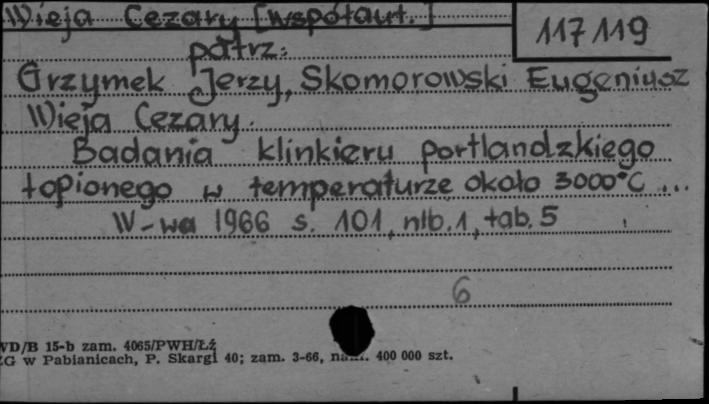 Wieja Cezary [współaut.]
117119
patrz:
Grzymek Jerzy, Skomorowski Eugeniusz
Wieja Cezary.
Badania klinkieru portlandzkiego
topionego w temperaturze około 3000°C ...
W-wa 1966 s. 101, nlb. 1, tab. 5
6
WD/B 15-b zam. 4065/PWH/Łź
ZG w Pabianicach, P. Skargi 40; zam. 3-66, 400 000 szt.